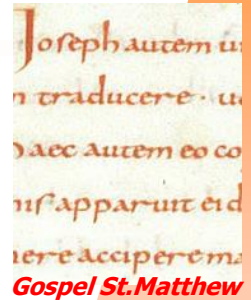 Joseph autem ui
n traducere · uo
Haec autem eo co
nis apparuit ei d
nere accipere ma
Gospel St.Matthew